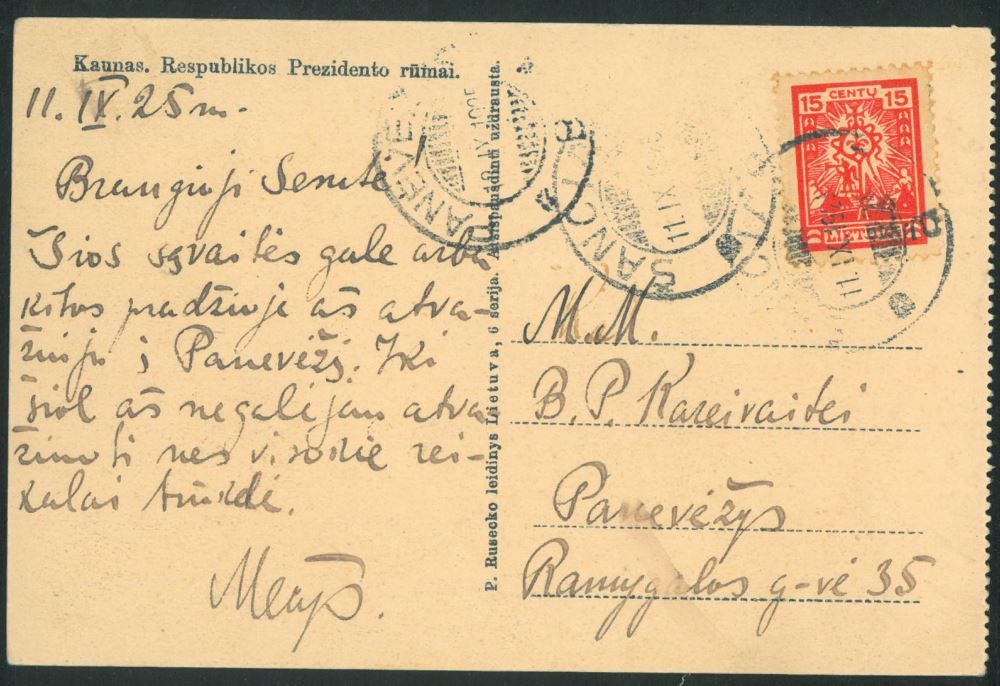 Kaunas. Respublikos Prezidento rūmai.
11. IX. 25 m.
Brangioji Senute
Šios sąvaitės gale arba
kitos pradžioje aš atva-
žiuoju į Panevėžį. Iki
šiol aš negalėjau atva-
žiuoti nes visokie rei-
kalai trukdė.
P. Rusecko leidinys Lietuva, 6 serija. Atspausdinti uždrausta.
PANEVĖ
IX 1925
ŠANČ
11. IX
15 CENTŲ 15
LIETUVA
11. IX
M. M.
B. P. Kareivaitei
Panevėžys
Ramygalos g-vė 35